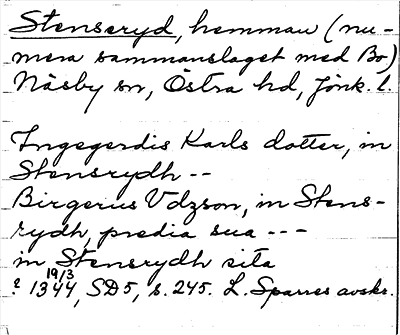 Stenseryd, hemman (nu-
mera sammanslaget med Bo)
Näsby sn, Östra hd, Jönk. l.
Ingegerdis Karls dotter, in
Stensrydh --
Birgerus Udzson, in Stens-
rydh, predia sua ---
in Stensrydh sita
19/3
? 1344, SD5, s. 245. L. Sparres avskr.